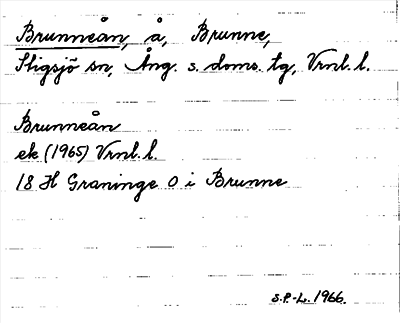 Brunneån, å, Brunne,
Stigsjö sn, Ång. s. doms. tg, Vrnl. l.
Brunneån
ek (1965) Vrnl. l.
18 H Graninge O i Brunne
S.P.-L. 1966.